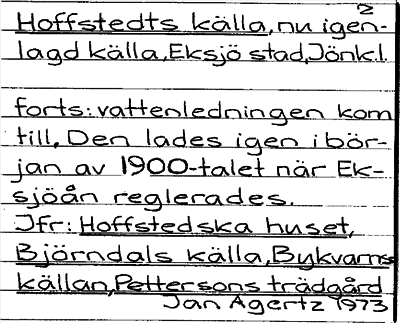 2
Hoffstedts källa, nu igen-
lagd källa, Eksjö stad, Jönk.l.
forts: vattenledningen kom
till. Den lades igen i bör-
jan av 1900-talet när Ek-
sjöån reglerades.
Jfr: Hoffstedska huset,
Björndals källa, Bykvarns-
källan, Pettersons trädgård
Jan Agertz 1973